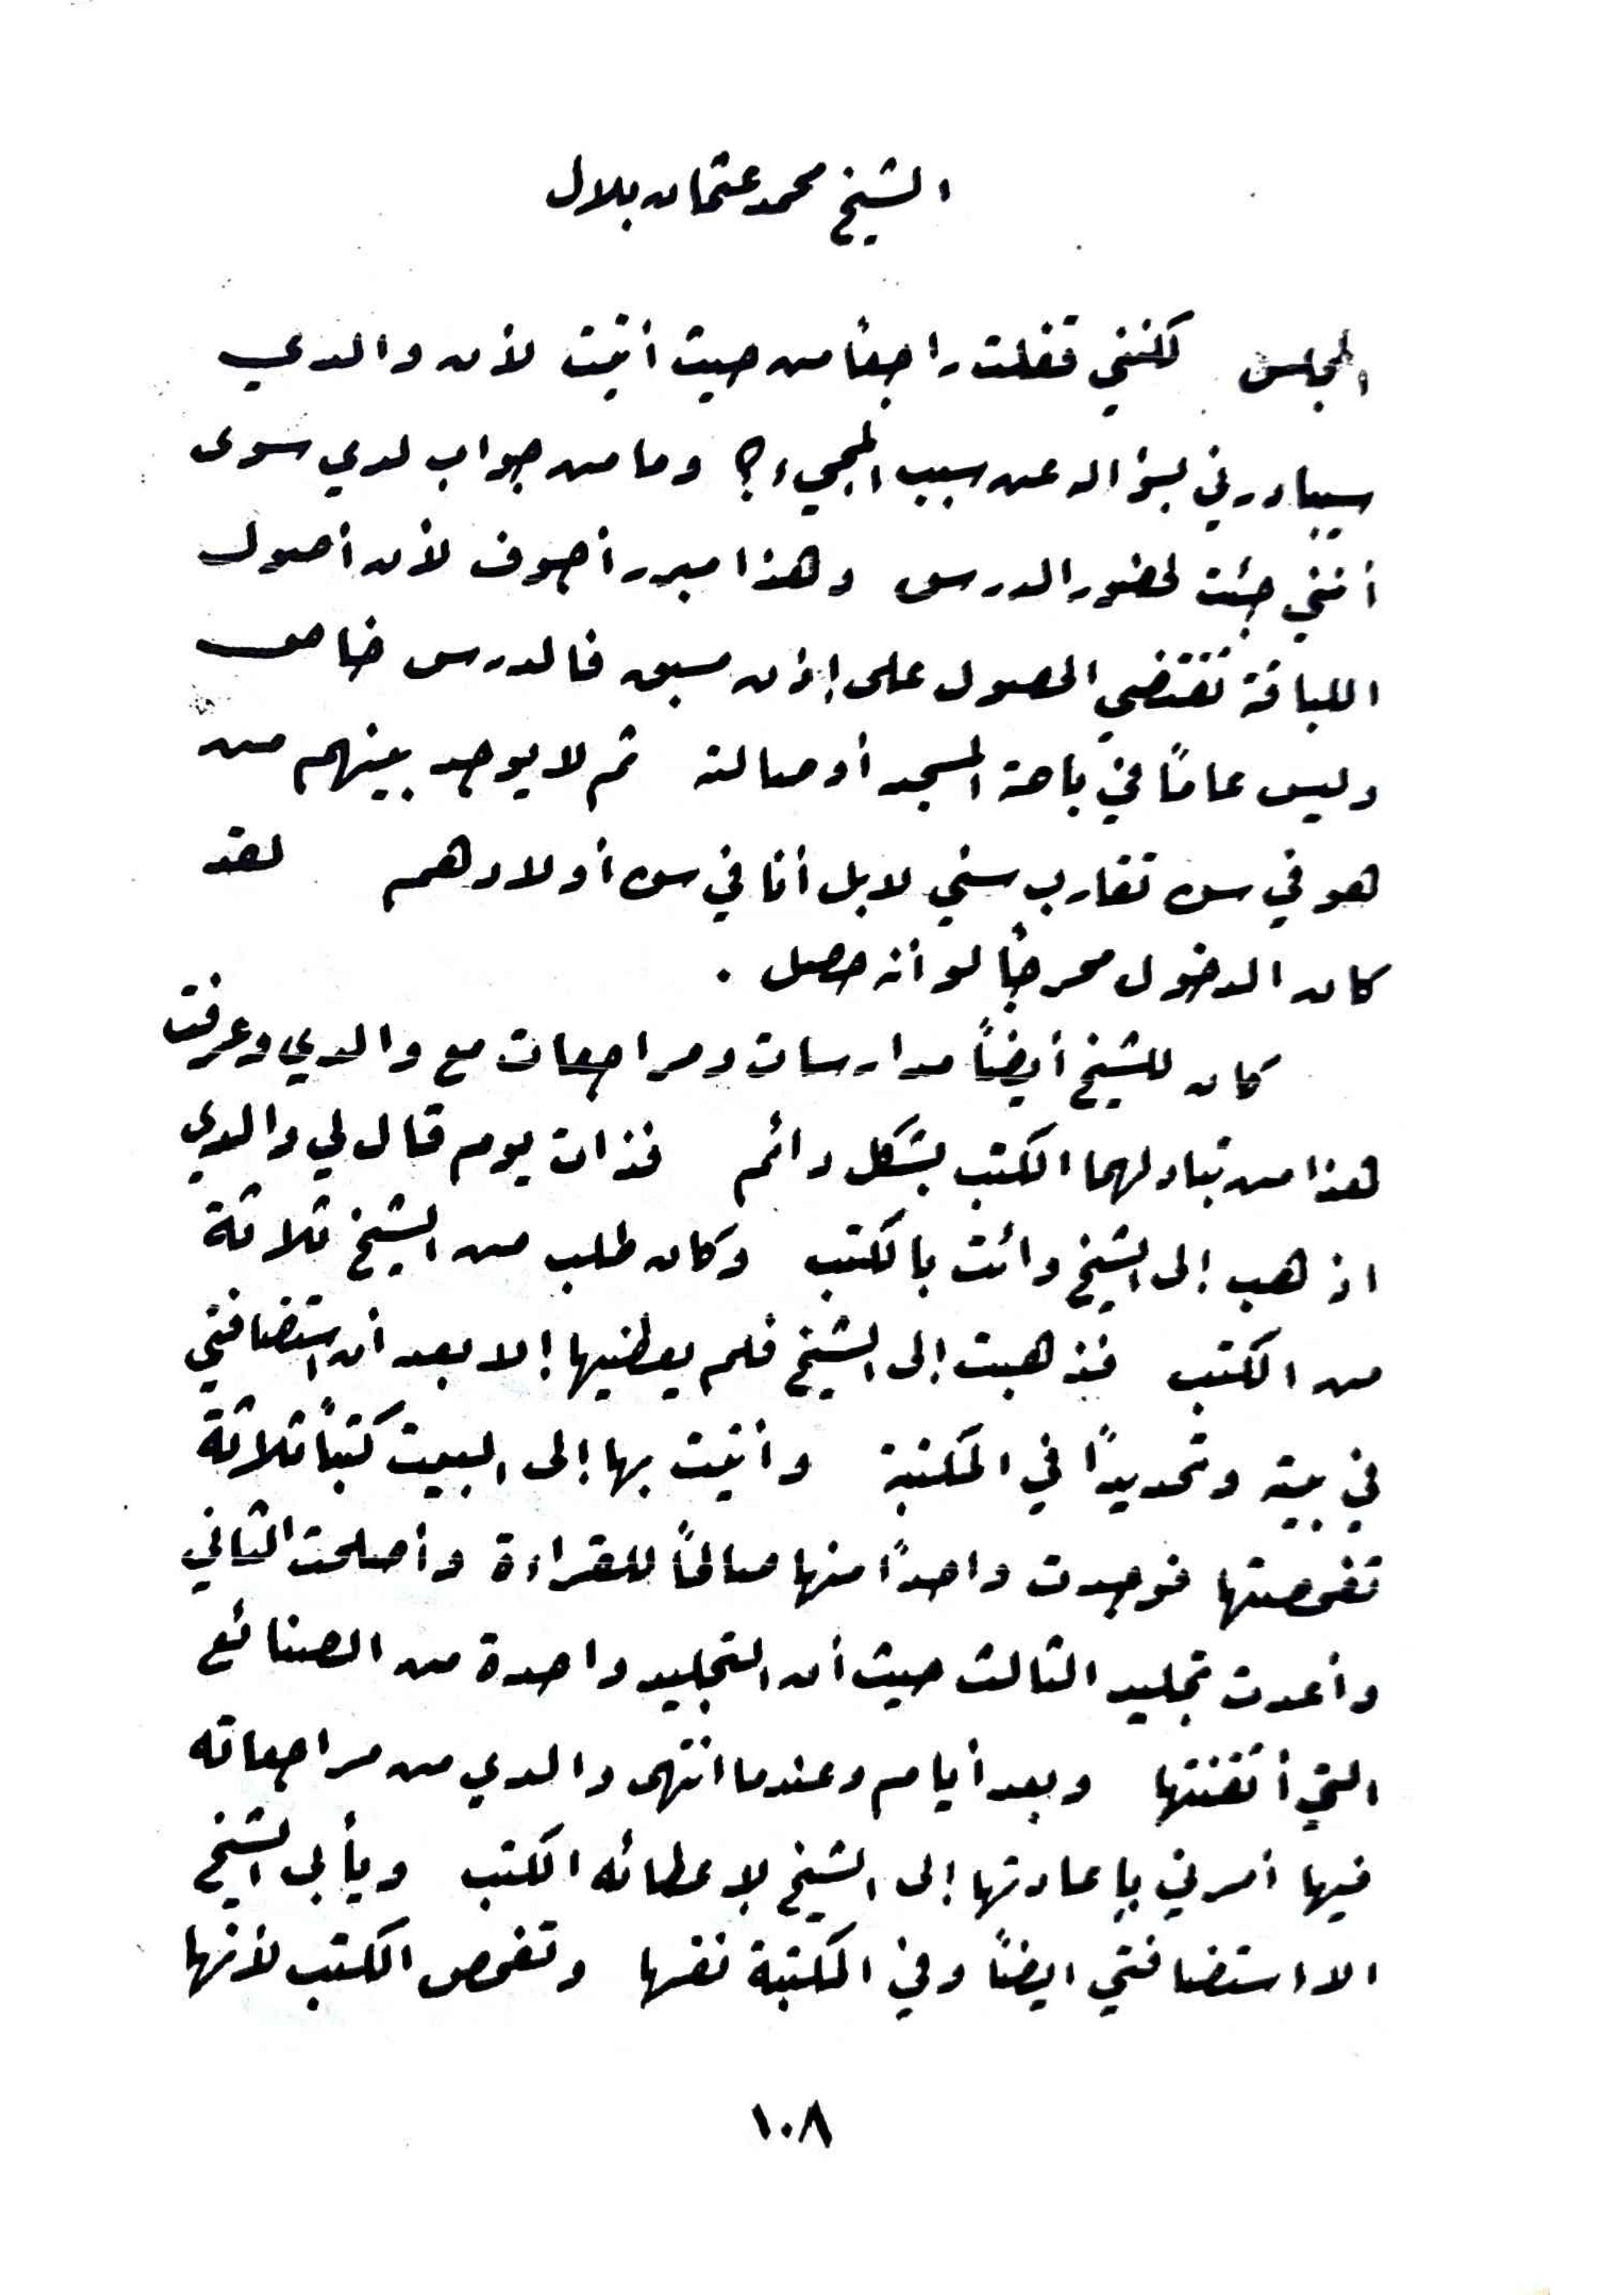 الشيخ محمد عثمان بلال
المجلس لكنني قفلت راجعاً من حيث أتيت لأن والدي
سيبادرني بسؤاله عن سبب المجيء؟ وما من جواب لدي سوى
أنني جئت لحضور الدرس وهذا مبرر أجوف لأن أصول
اللباقة تقتضي الحصول على إذن مسبق فالدرس خاص
وليس عاماً في باحة المسجد أو صالته ثم لا يوجد بينهم من
هو في سن تقارب سني لا بل أنا في سن أولادهم لقد
كان الدخول محرجاً لو أنه حصل .
كان للشيخ أيضاً مدارسات ومراجعات مع والدي وعرفت
هذا من تبادلهما الكتب بشكل دائم فذات يوم قال لي والدي
اذهب إلى الشيخ وائت بالكتب وكان طلب من الشيخ ثلاثة
من الكتب فذهبت إلى الشيخ فلم يعطنيها إلا بعد أن استضافني
في بيته وتحديداً في المكتبة وأتيت بها إلى البيت كتباً ثلاثة
تفحصتها فوجدت واحداً منها صالحاً للقراءة وأصلحت الثاني
وأعدت تجليد الثالث حيث أن التجليد واحدة من الصنائع
التي أتقنتها وبعد أيام وعندما انتهى والدي من مراجعاته
فيها أمرني بإعادتها إلى الشيخ لإعطائه الكتب ويأبى الشيخ
الا استضافتي ايضاً وفي المكتبة نفسها وتفحص الكتب لأنها
١٠٨